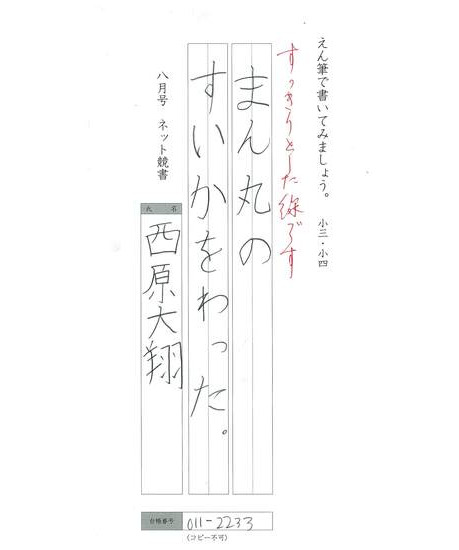 えん筆で書いてみましょう。 小三・小四
すっきりとした線です
まん丸の
すいかをわった。
八月号 ネット競書
氏名
西原大翔
台帳番号 011-2233
(コピー不可)